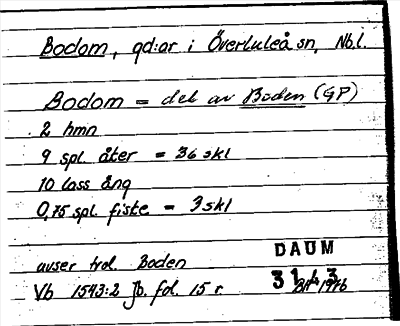 Bodom, gd:ar i Överluleå sn, Nb.l.
Bodom = del av Boden (GP)
2 hmn
9 spl. åker = 36 skl
10 lass äng
0,75 spl. fiske = 3 skl
avser trol. Boden
Vb 1543:2 Jb. fol. 15 r.
DAUM
3143